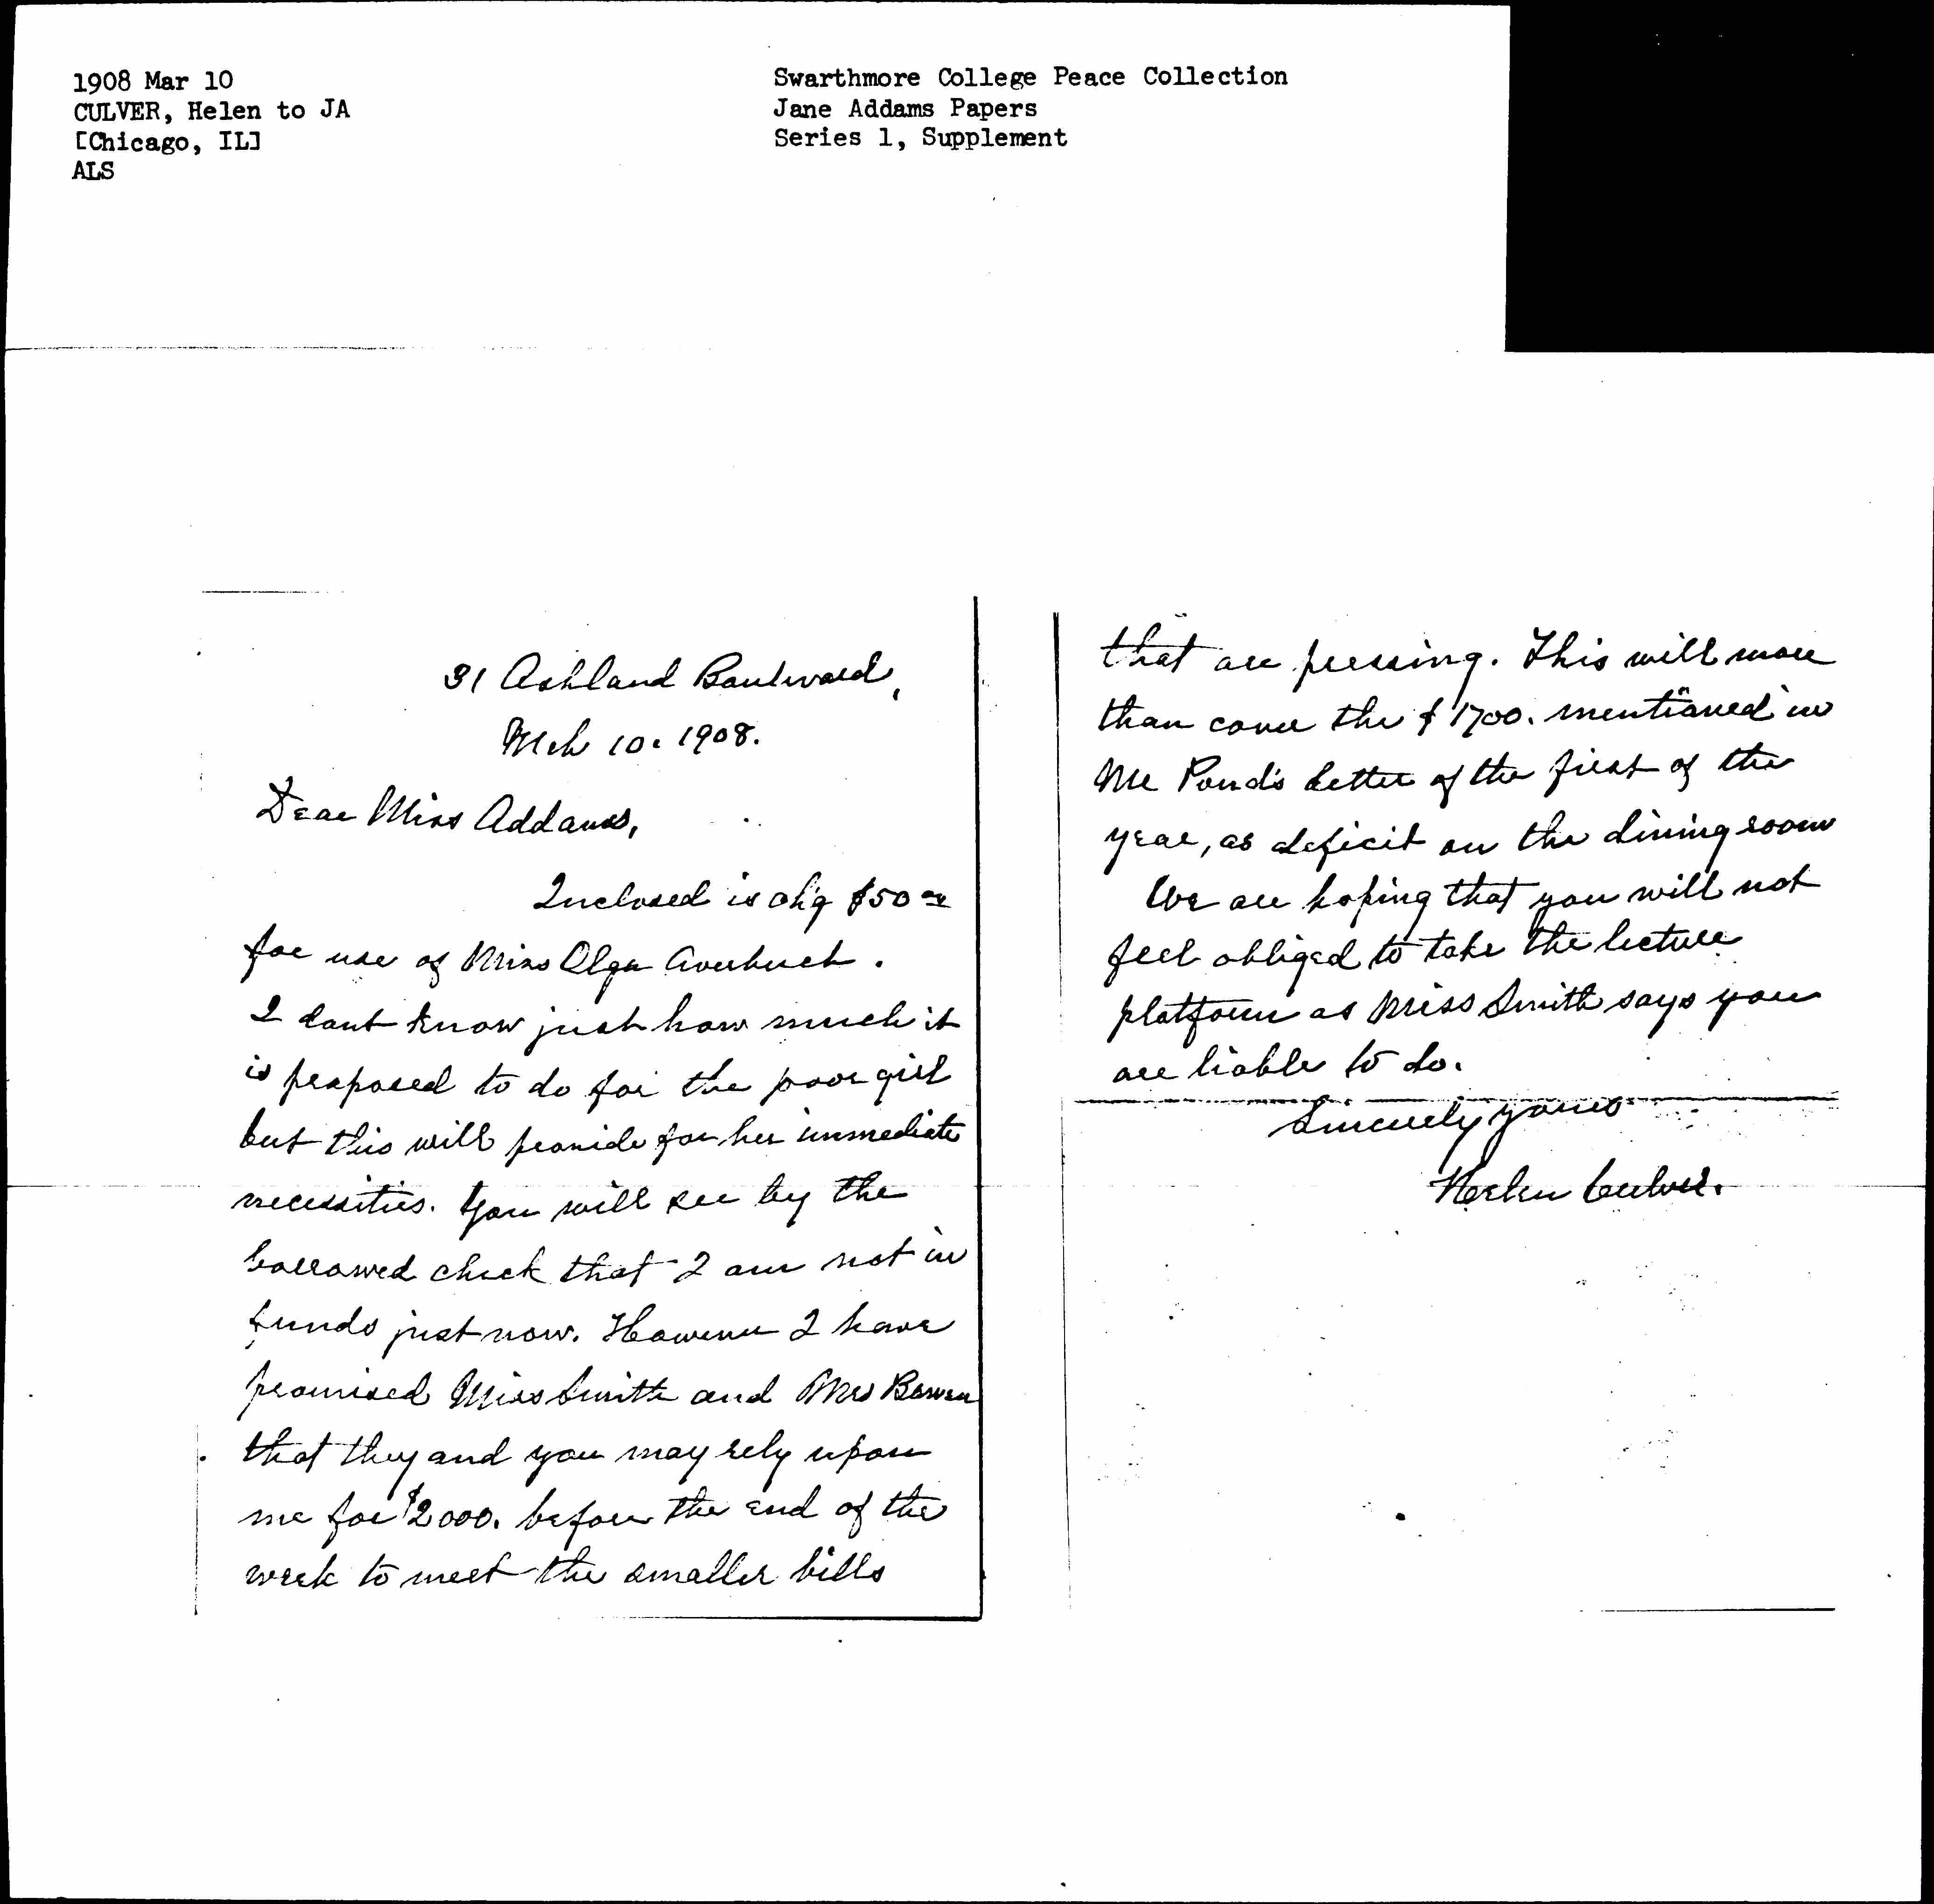 1908 Mar 10
CULVER, Helen to JA
[Chicago, IL]
ALS
Swarthmore College Peace Collection
Jane Addams Papers
Series 1, Supplement
31 Ashland Boulevard,
Mch 10. 1908.
Dear Miss Addams,
Inclosed is ch'q $50 00
for use of Miss Olga Averbuch.
I dont know just how much it
is proposed to do for the poor girl
but this will provide for her immediate
necessities. You will see by the
borrowed check that I am not in
funds just now. However I have
promised Miss Smith and Mrs Bowen
that they and you may rely upon
me for $2000. before the end of the
week to meet the smaller bills
that are pressing. This will more
than cover the $1700. mentioned in
Mr Pond's letter of the first of the
year, as deficit on the dining room
We are hoping that you will not
feel obliged to take the lecture
platform as Miss Smith says you
are liable to do.
Sincerely yours
Helen Culver.